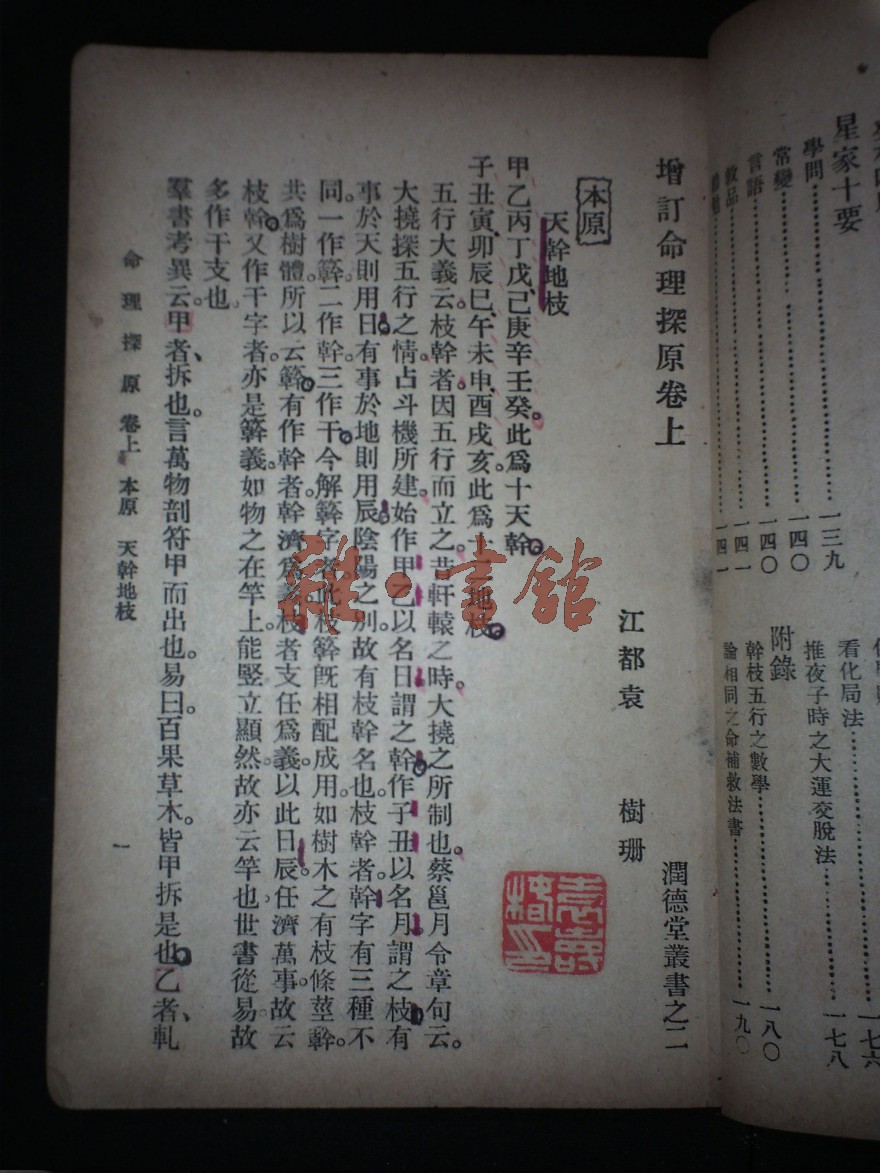 星家十要
學問⋯⋯一三九
常變⋯⋯一四〇
言語⋯⋯一四〇
敦品⋯⋯一四一
一四一
附錄
看化局法⋯⋯一七六
推夜子時之大運交脫法⋯⋯一七八
幹枝五行之數學⋯⋯一八〇
論相同之命補救法書⋯⋯一九〇
增訂命理探原卷上
潤德堂叢書之二
江都袁 樹珊
本原
天幹地枝
甲乙丙丁戊、己庚辛壬癸。此爲十天幹。
子丑寅、卯辰巳、午未申、酉戌亥。此爲十二地枝。
五行大義云。枝幹者。因五行而立之。昔軒轅之時。大撓之所制也。蔡邕月令章句云。
大撓探五行之情。占斗機所建。始作甲乙以名日。謂之幹。作子丑以名月。謂之枝。有
事於天則用日。有事於地則用辰。陰陽之別。故有枝幹名也。枝幹者。幹字有三種不
同。一作簳。二作幹。三作干。今解簳字者。此枝簳既相配成用。如樹木之有枝條莖簳。
共爲樹體。所以云簳。有作幹者。幹濟爲義。枝者支任爲義。以此日辰。任濟萬事。故云
枝幹。又作干字者。亦是簳義。如物之在竿上。能豎立顯然。故亦云竿也。世書從易。故
多作干支也。
羣書考異云。甲者、拆也。言萬物剖符甲而出也。易曰。百果草木。皆甲拆是也。乙者、軋
命理探原 卷上 本原 天幹地枝
一
雜·書館